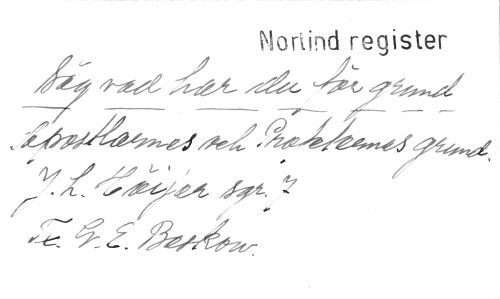 Norlind register
Säg vad har du för grund
Apostlarnes och Profeternes grund.
J. L. Höijer sgr. 7
Tx. G. E. Beskow.